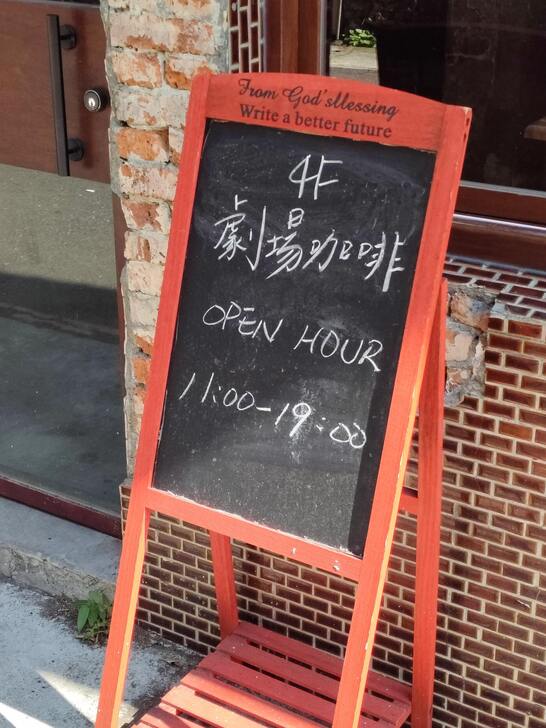 From God'sllessing
Write a better future
4F
劇場咖啡
OPEN HOUR
11:00-19:00